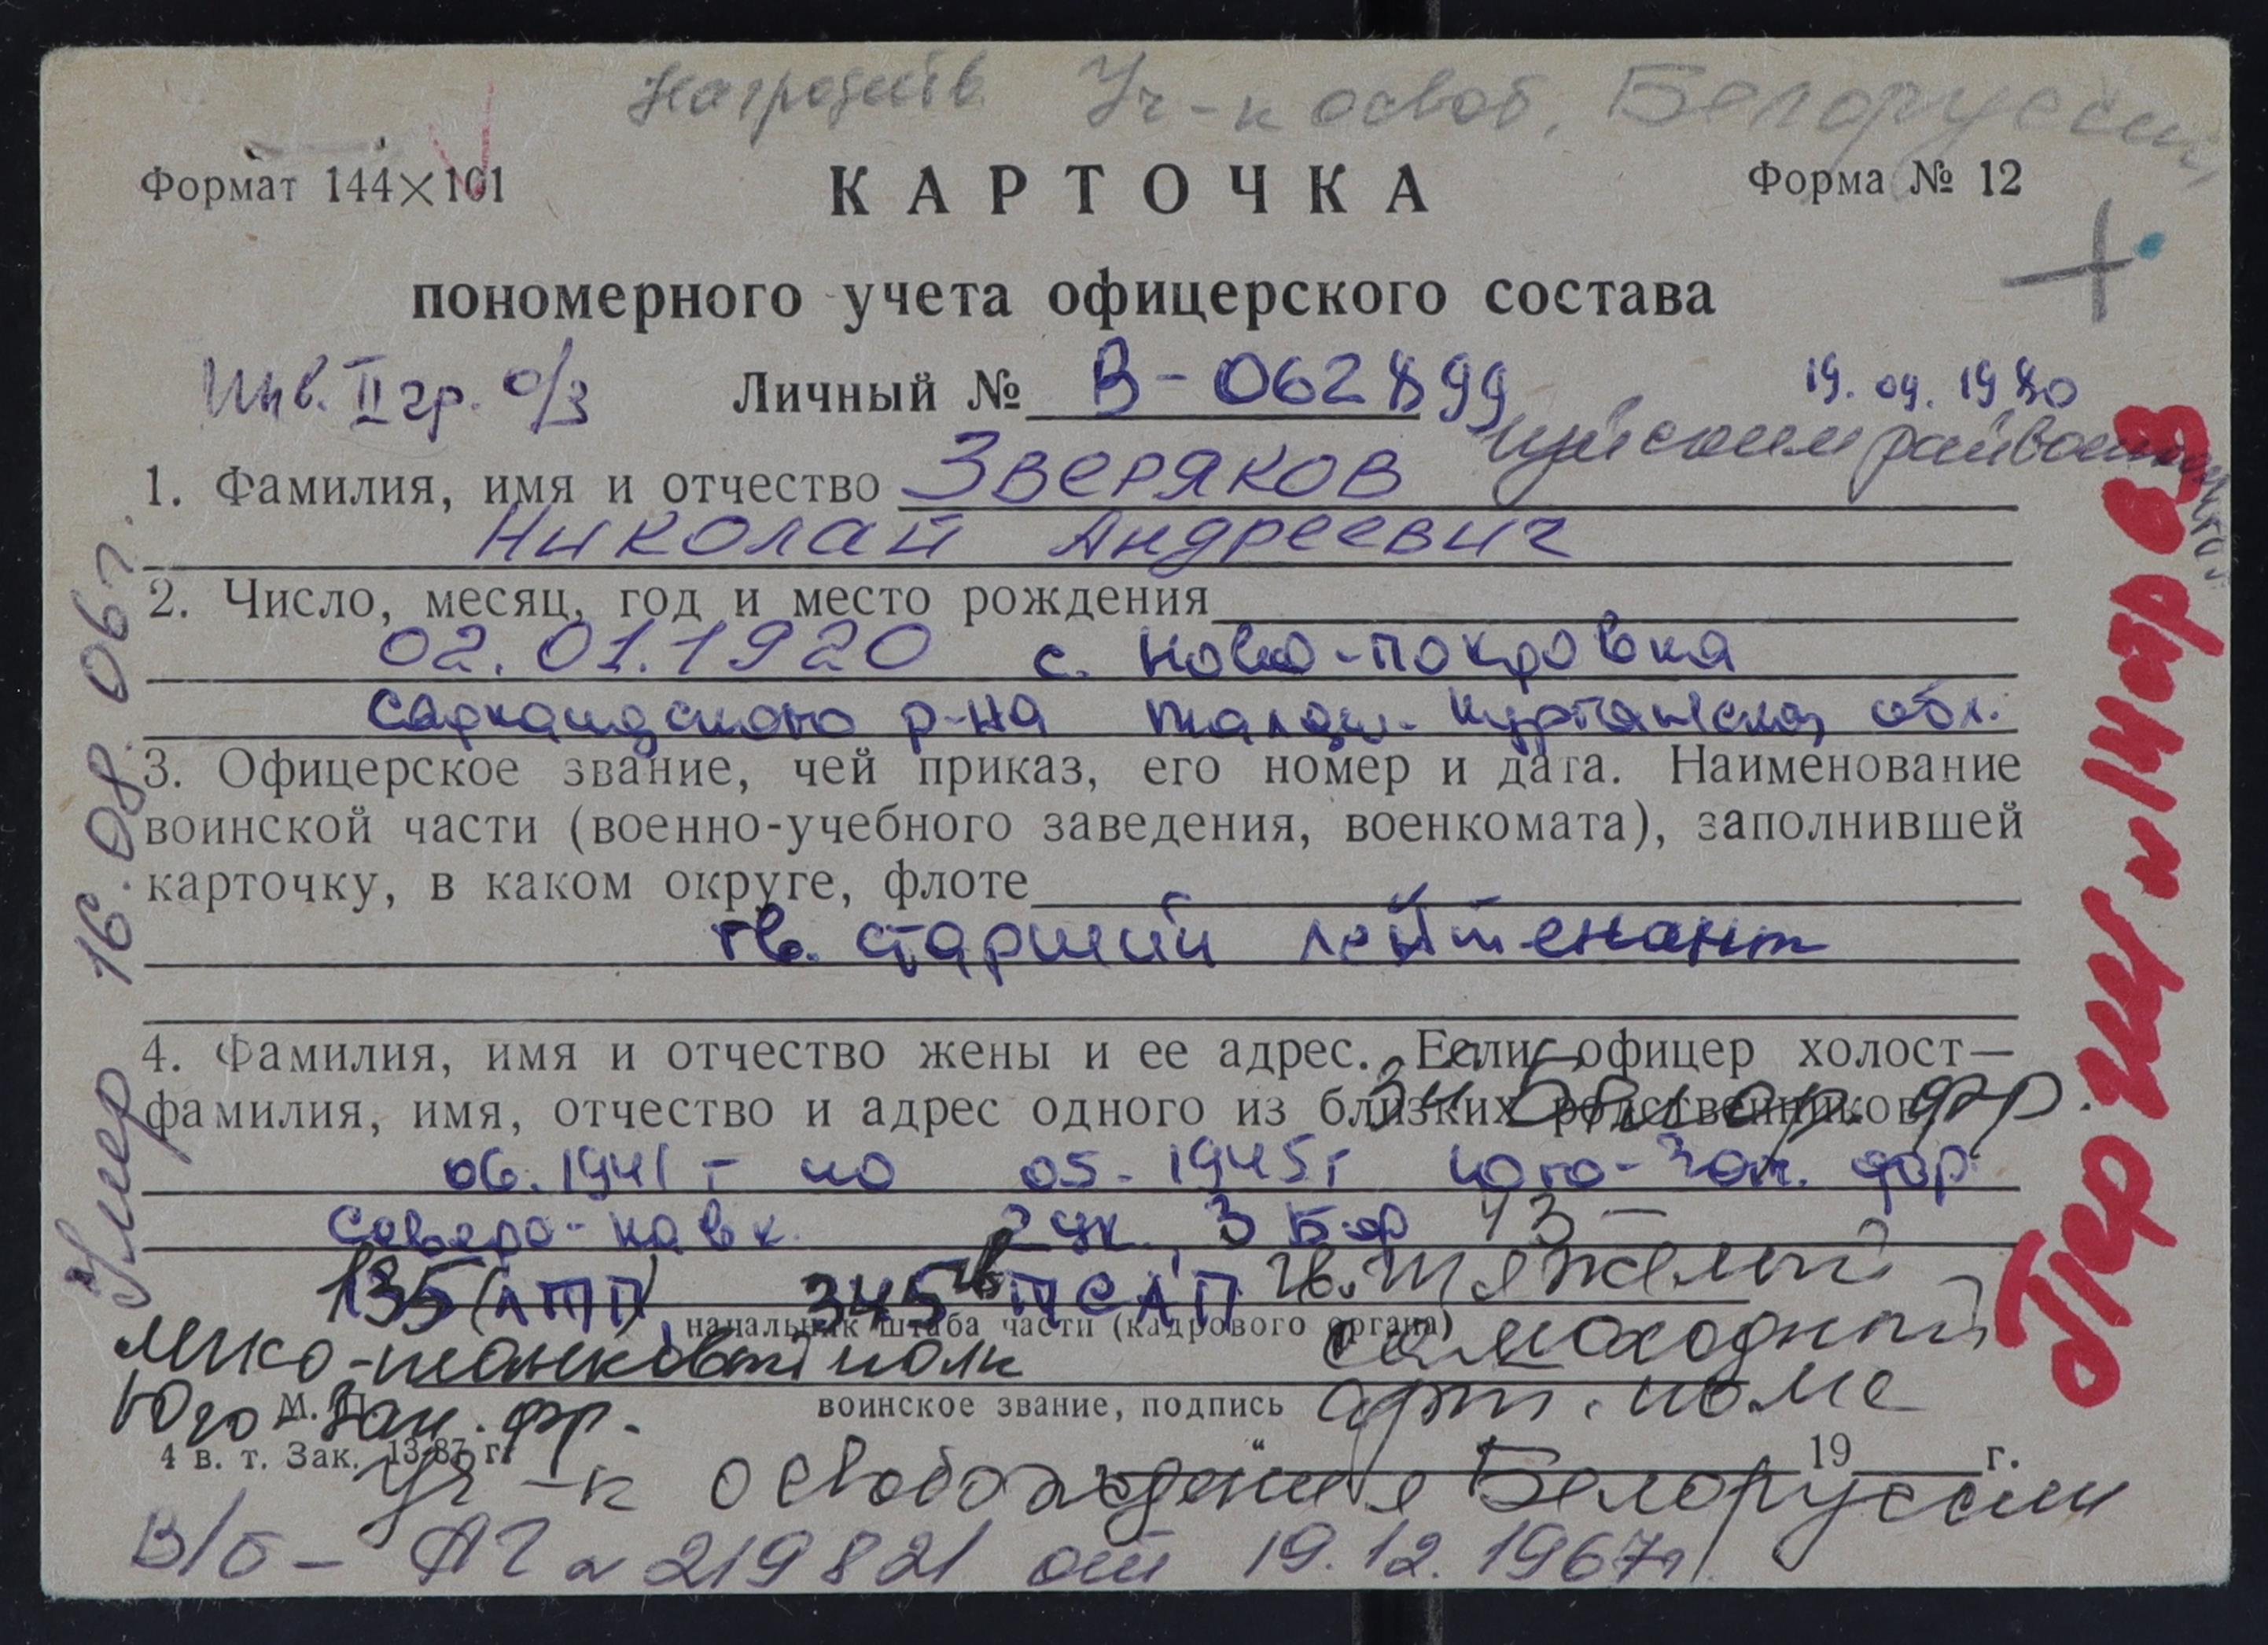 Уч-к освоб. Белоруссии
Формат 144×101
КАРТОЧКА
Форма № 12
пономерного учета офицерского состава
Инв. II гр. о/з
Личный № В-062899
19.09.1980
1. Фамилия, имя и отчество Зверяков
Николай Андреевич
2. Число, месяц, год и место рождения
02.01.1920 с. Ново-покровка
Саркандского р-на Талды-Курганской обл.
3. Офицерское звание, чей приказ, его номер и дата. Наименование
воинской части (военно-учебного заведения, военкомата), заполнившей
карточку, в каком округе, флоте
гв. старший лейтенант
4. Фамилия, имя и отчество жены и ее адрес. Если офицер холост—
фамилия, имя, отчество и адрес одного из близких родственников
3й Белор. фр.
06.1941г по 05.1945г Юго-Зап. фр
Северо-кавк. 2 Ук, 3 Б фр 43-
135 (ЛТП), 345 гв ТСАП гв. тяжелый
начальник штаба части (кадрового органа)
самоходный
танковый полк
М. П.
воинское звание, подпись
арт. полк
Юго-Зап. фр.
4 в. т. Зак. 13-87 г.
" 19 г.
Уч-к освобождения Белоруссии
В/б - АГ № 219821 от 19.12.1967г.
Умер 16.08.06г.
Пер